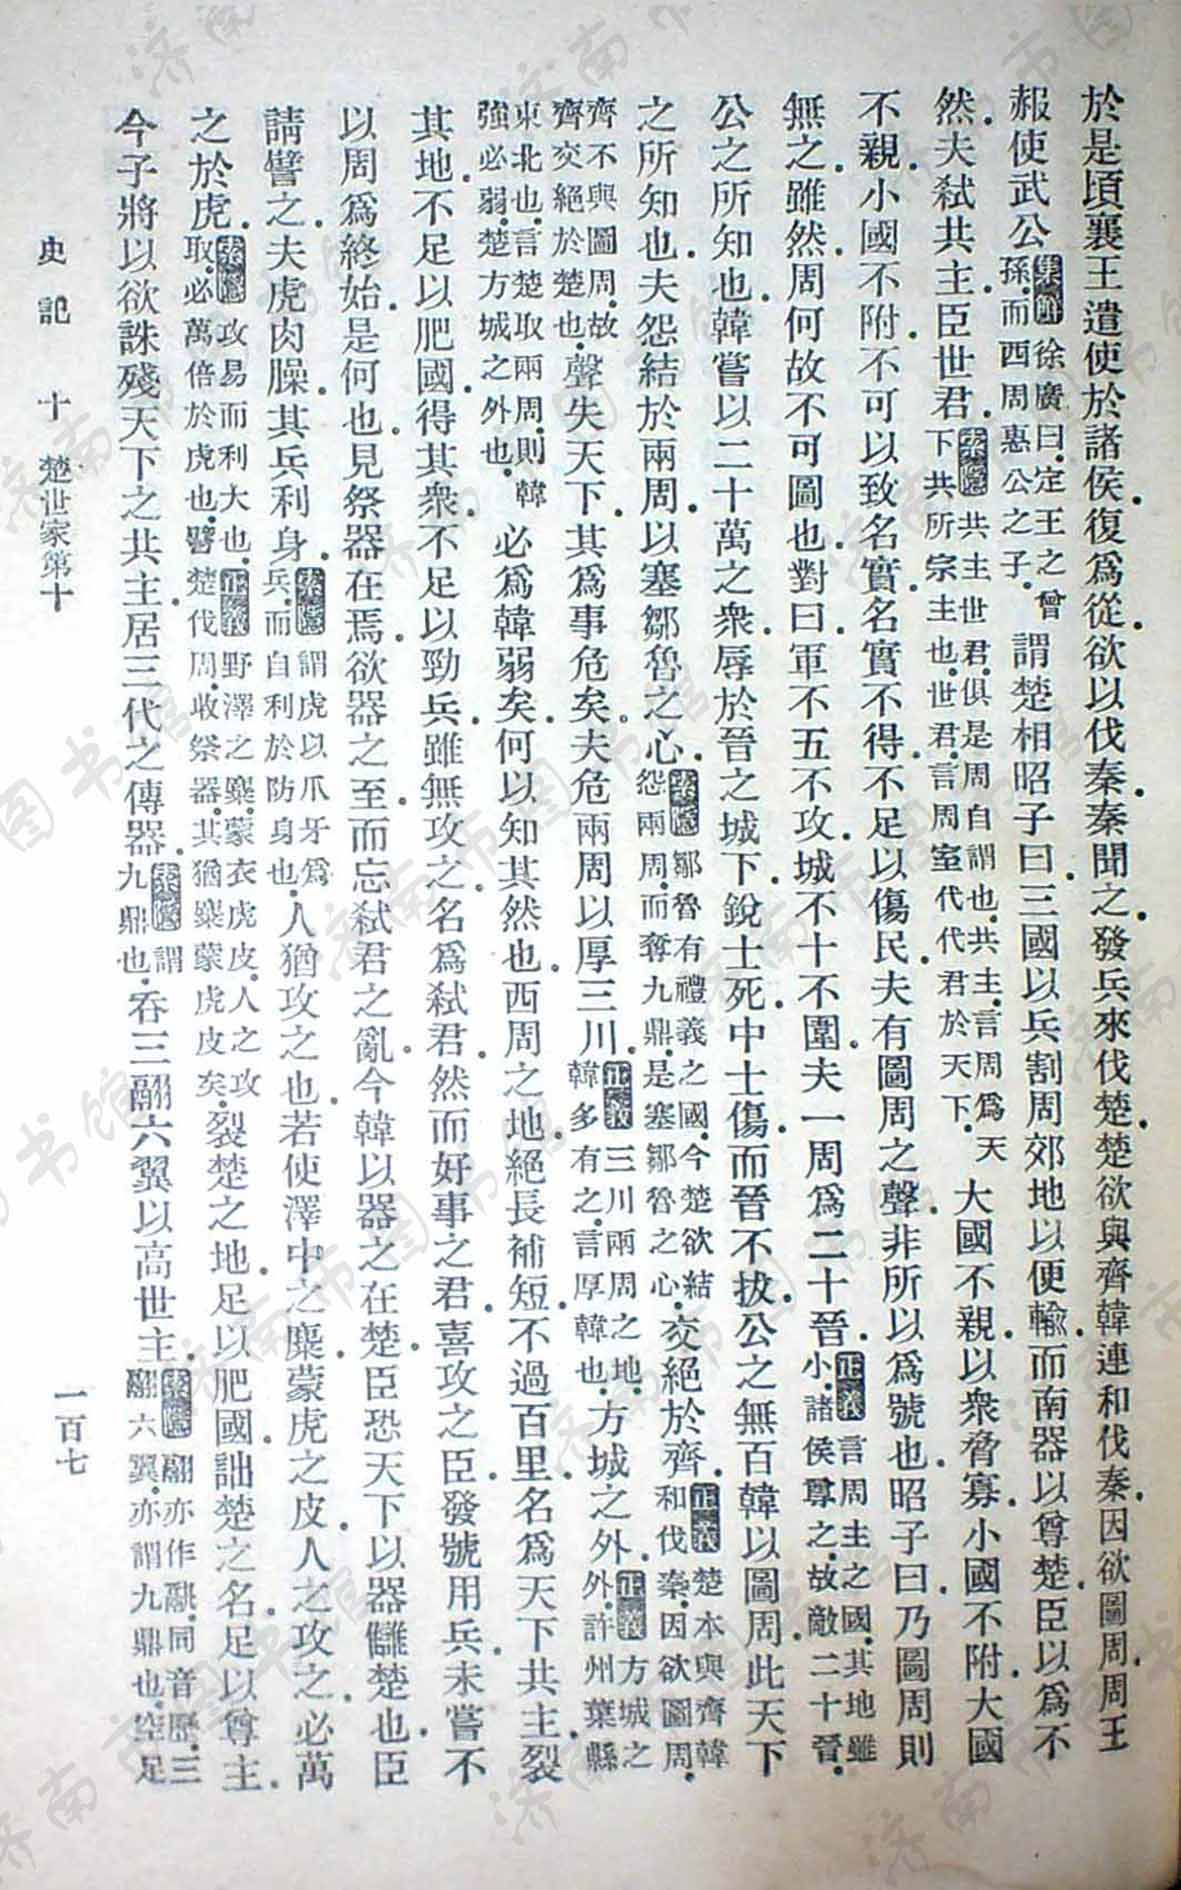 於是頃襄王遣使於諸侯復爲從欲以伐秦秦聞之發兵來伐楚楚欲與齊韓連和伐秦因欲圖周周王
赧使武公集解徐廣曰定王之曾孫而西周惠公之子謂楚相昭子曰三國以兵割周郊地以便輸而南器以尊楚臣以爲不
然夫弒共主臣世君索隱共主世君俱是周自謂也共主言周爲天下共所宗主也世君言周室代代君於天下大國不親以衆脅寡小國不附大國
不親小國不附不可以致名實名實不得不足以傷民夫有圖周之聲非所以爲號也昭子曰乃圖周則
無之雖然周何故不可圖也對曰軍不五不攻城不十不圍夫一周爲二十晉正義言周主之國其地雖小諸侯尊之故敵二十晉
公之所知也韓嘗以二十萬之衆辱於晉之城下銳士死中士傷而晉不拔公之無百韓以圖周此天下
之所知也夫怨結於兩周以塞鄒魯之心索隱鄒魯有禮義之國今楚欲結怨兩周而奪九鼎是塞鄒魯之心交絕於齊正義楚本與齊韓和伐秦因欲圖周
齊不與圖周故齊交絕於楚也聲失天下其爲事危矣夫危兩周以厚三川正義三川兩周之地韓多有之言厚韓也方城之外正義方城之外許州葉縣
東北也言楚取兩周則韓強必弱楚方城之外也必爲韓弱矣何以知其然也西周之地絕長補短不過百里名爲天下共主裂
其地不足以肥國得其衆不足以勁兵雖無攻之名爲弒君然而好事之君喜攻之臣發號用兵未嘗不
以周爲終始是何也見祭器在焉欲器之至而忘弒君之亂今韓以器之在楚臣恐天下以器讎楚也臣
請譬之夫虎肉臊其兵利身索隱謂虎以爪牙爲兵而自利於防身也人猶攻之也若使澤中之麋蒙虎之皮人之攻之必萬
之於虎索隱攻易而利大也正義野澤之麋蒙衣虎皮人之攻取必萬倍於虎也譬楚伐周收祭器其猶麋蒙虎皮矣裂楚之地足以肥國詘楚之名足以尊主
今子將以欲誅殘天下之共主居三代之傳器索隱謂九鼎也吞三翮六翼以高世主索隱翮亦作䰛同音歷三翮六翼亦謂九鼎也空足
史記 十 楚世家第十 一百七